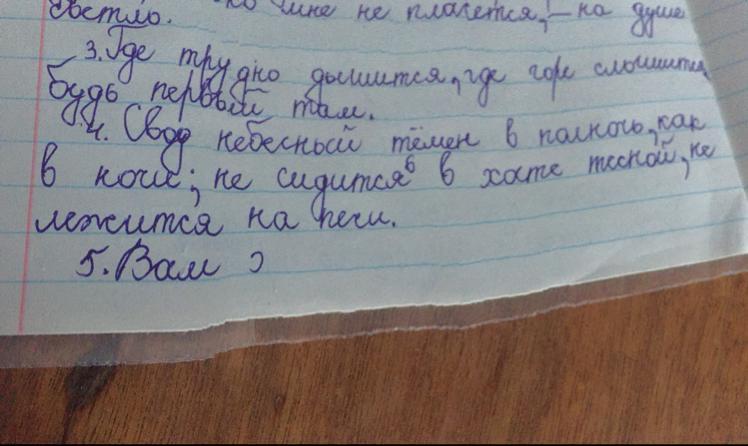 светло. мне не плачется, – на душе
3. Где трудно дышится, где горе слышится,
будь первый там.
4. Свод небесный тёмен в полночь, как
в ночи; не сидится в хате тесной, не
лежится на печи.
5. Вам